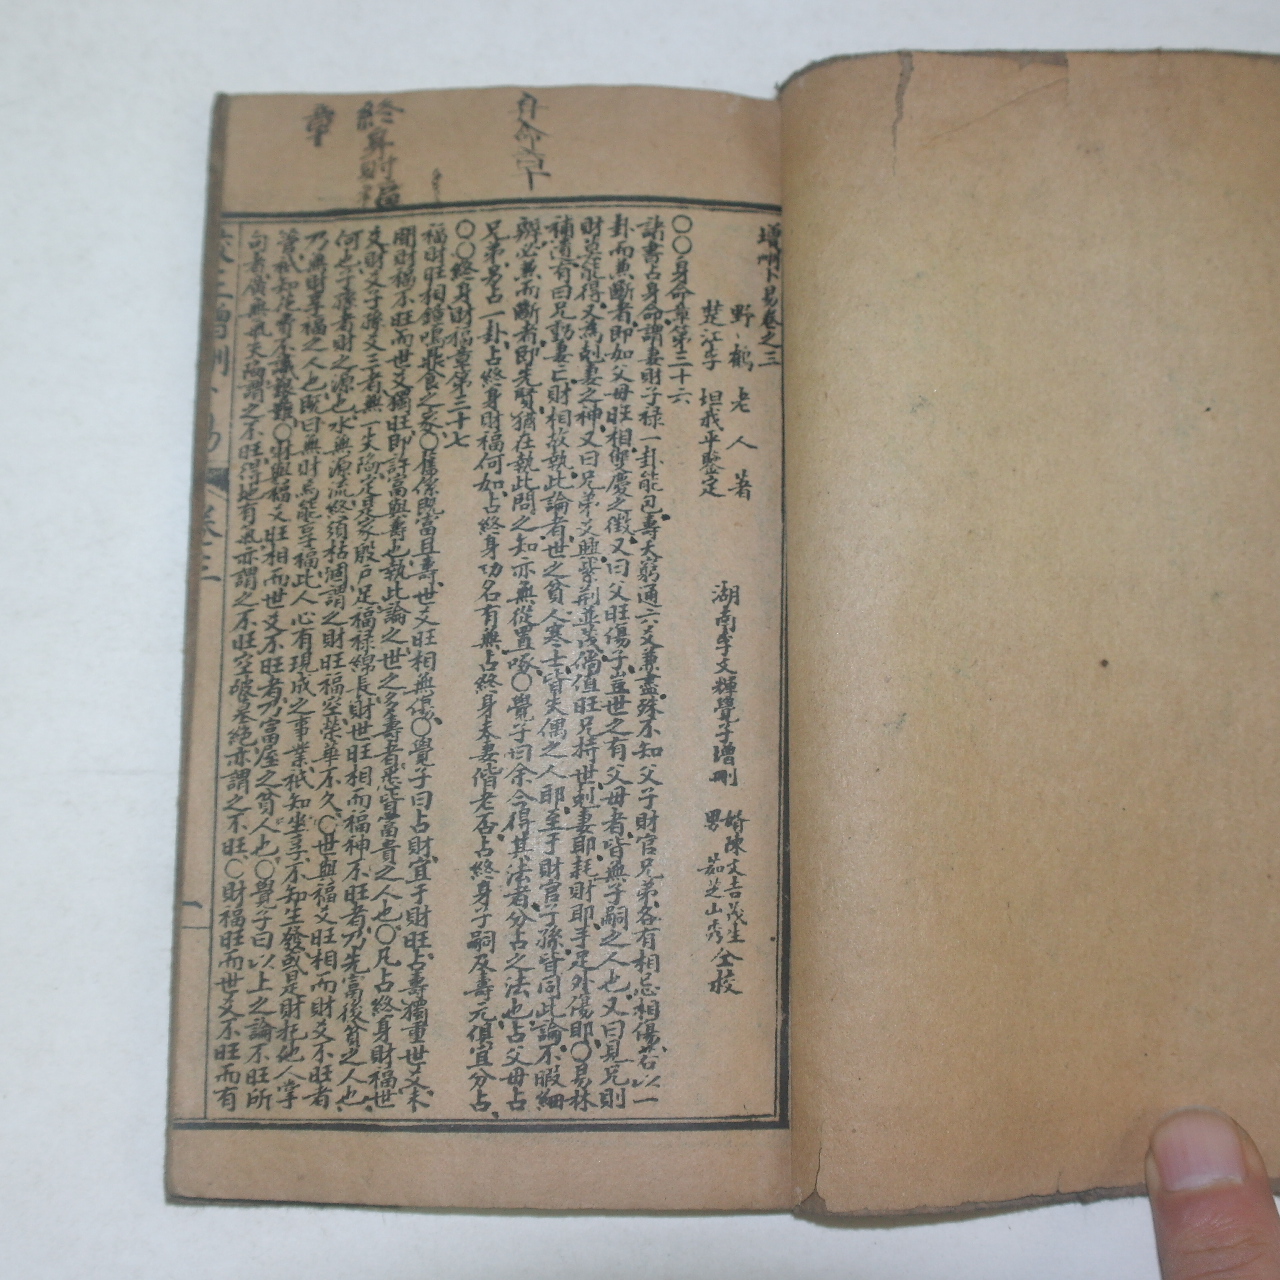 身命占
終身財福
章
增刪卜易卷之三
野鶴老人著
楚江李 坦我平鑒定
湖南李文輝覺子增刪
婿陳文吉茂生
男 茹芝山秀 仝校
○○身命章第三十六
諸書占身命謂妻財子祿一卦能包壽夭窮通六爻兼盡殊不知父子財官兄弟各有相忌相傷若以一
卦而兼斷者即如父母旺相雙慶之徵又曰父旺傷子豈世之有父母者皆無子嗣之人也又曰見兄則
財莫能得又為剋妻之神又曰兄弟爻旺紫荊並茂倘值旺兄持世剋妻耶耗財耶手足外傷耶○易林
補遺有曰兄動妻亡財相故執此論者世之貧人寒士皆失偶之人耶至于財官子孫皆同此論不暇細
辯必兼而斷者即先賢猶在執此問之知亦無從置啄○覺子曰余今得其法者分占之法也占父母占
兄弟另占一卦占終身財福何如占終身功名有無占終身夫妻偕老否占終身子嗣及壽元俱宜分占
○○終身財福章第三十七
福財旺相鐘鳴鼎食之家○舊係既富且壽世爻旺相無傷○覺子曰占財宜于財旺占壽獨重世爻未
聞財福不旺而世爻獨旺即許富與壽也執此論之世之多壽者悉皆富貴之人也○凡占終身財福世
爻財爻子孫爻三者無一失陷定是家殷戶足福祿綿長財世旺相而福神不旺者乃先富後貧之人也
何也子孫者財之源也水無源流終須枯涸謂之財旺福空榮華不久○世與福爻旺相而財爻不旺者
乃無財享福之人也或曰無財焉能享福此人心有現成之事業祇知坐享不知生發或是財托他人掌
管祇知花費不識艱難○財與福爻旺相而世爻不旺者乃富屋之貧人也○覺子曰以上之論不旺所
句者廣無氣失陷謂之不旺得地有氣亦謂之不旺空破墓絕亦謂之不旺○財福旺而世爻不旺而有
卷三增刪卜易 卷三 一